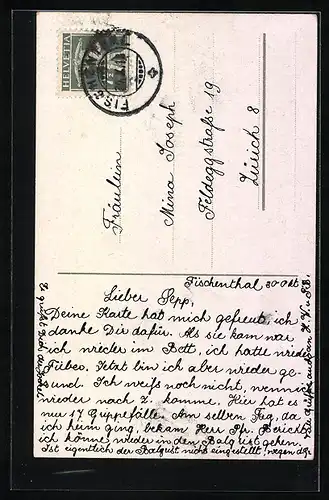 HELVETIA
FISCHENTHAL
Fräulein
Mina Joseph
Feldeggstraße 19
Zürich 8
Fischenthal 30 Okt.
Lieber Sepp,
Deine Karte hat mich gefreut, ich
danke Dir dafür. Als sie kam war
ich wieder im Bett, ich hatte wieder
Fieber. Jetzt bin ich aber wieder ge-
sund. Ich weiß noch nicht, wenn ich
wieder nach Z. komme. Hier hat es
nur 17 Grippefälle. Am selben Tag, da
ich heim ging, bekam Herr Pfr. Bericht,
ich könne wieder in den Balgrist gehen.
Ist eigentlich der Balgrist nicht eingestellt, wegen d. G.
Es grüßt Dich
Viele Grüße auch an H. K. u. F. B.